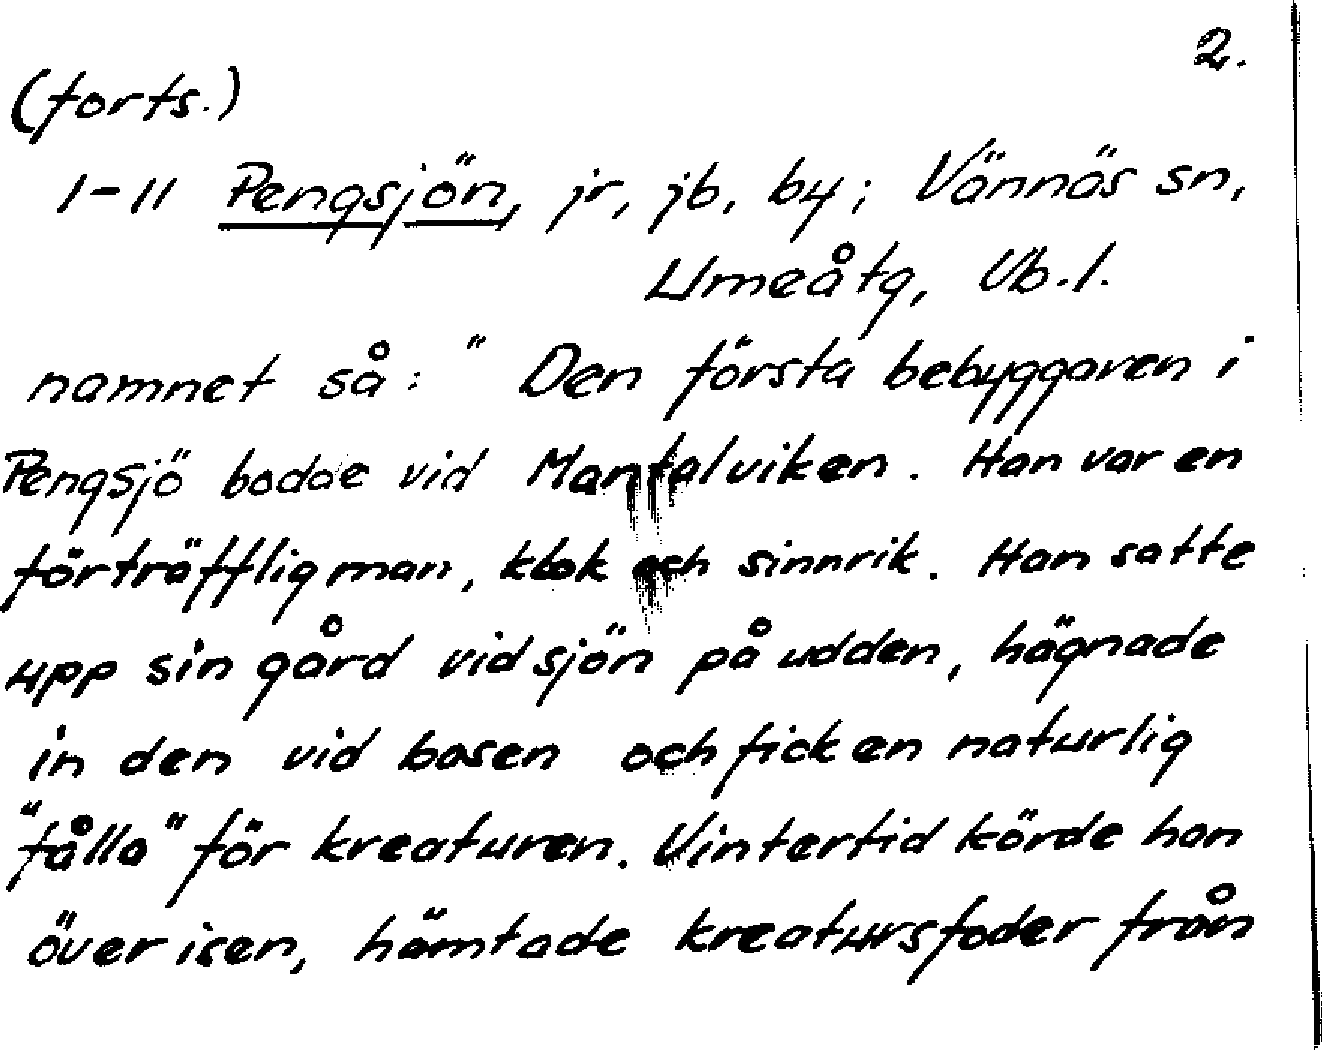 2.
(forts.)
1-11 Pengsjön, jr, jb, by; Vännäs sn,
Umeåtg, Vb.l.
namnet så: "Den första bebyggaren i
Pengsjö bodde vid Mantalviken. Han var en
förträfflig man, klok och sinnrik. Han satte
upp sin gård vid sjön på udden, hägnade
in den vid basen och fick en naturlig
"fålla" för kreaturen. Vintertid körde han
över isen, hämtade kreatursfoder från